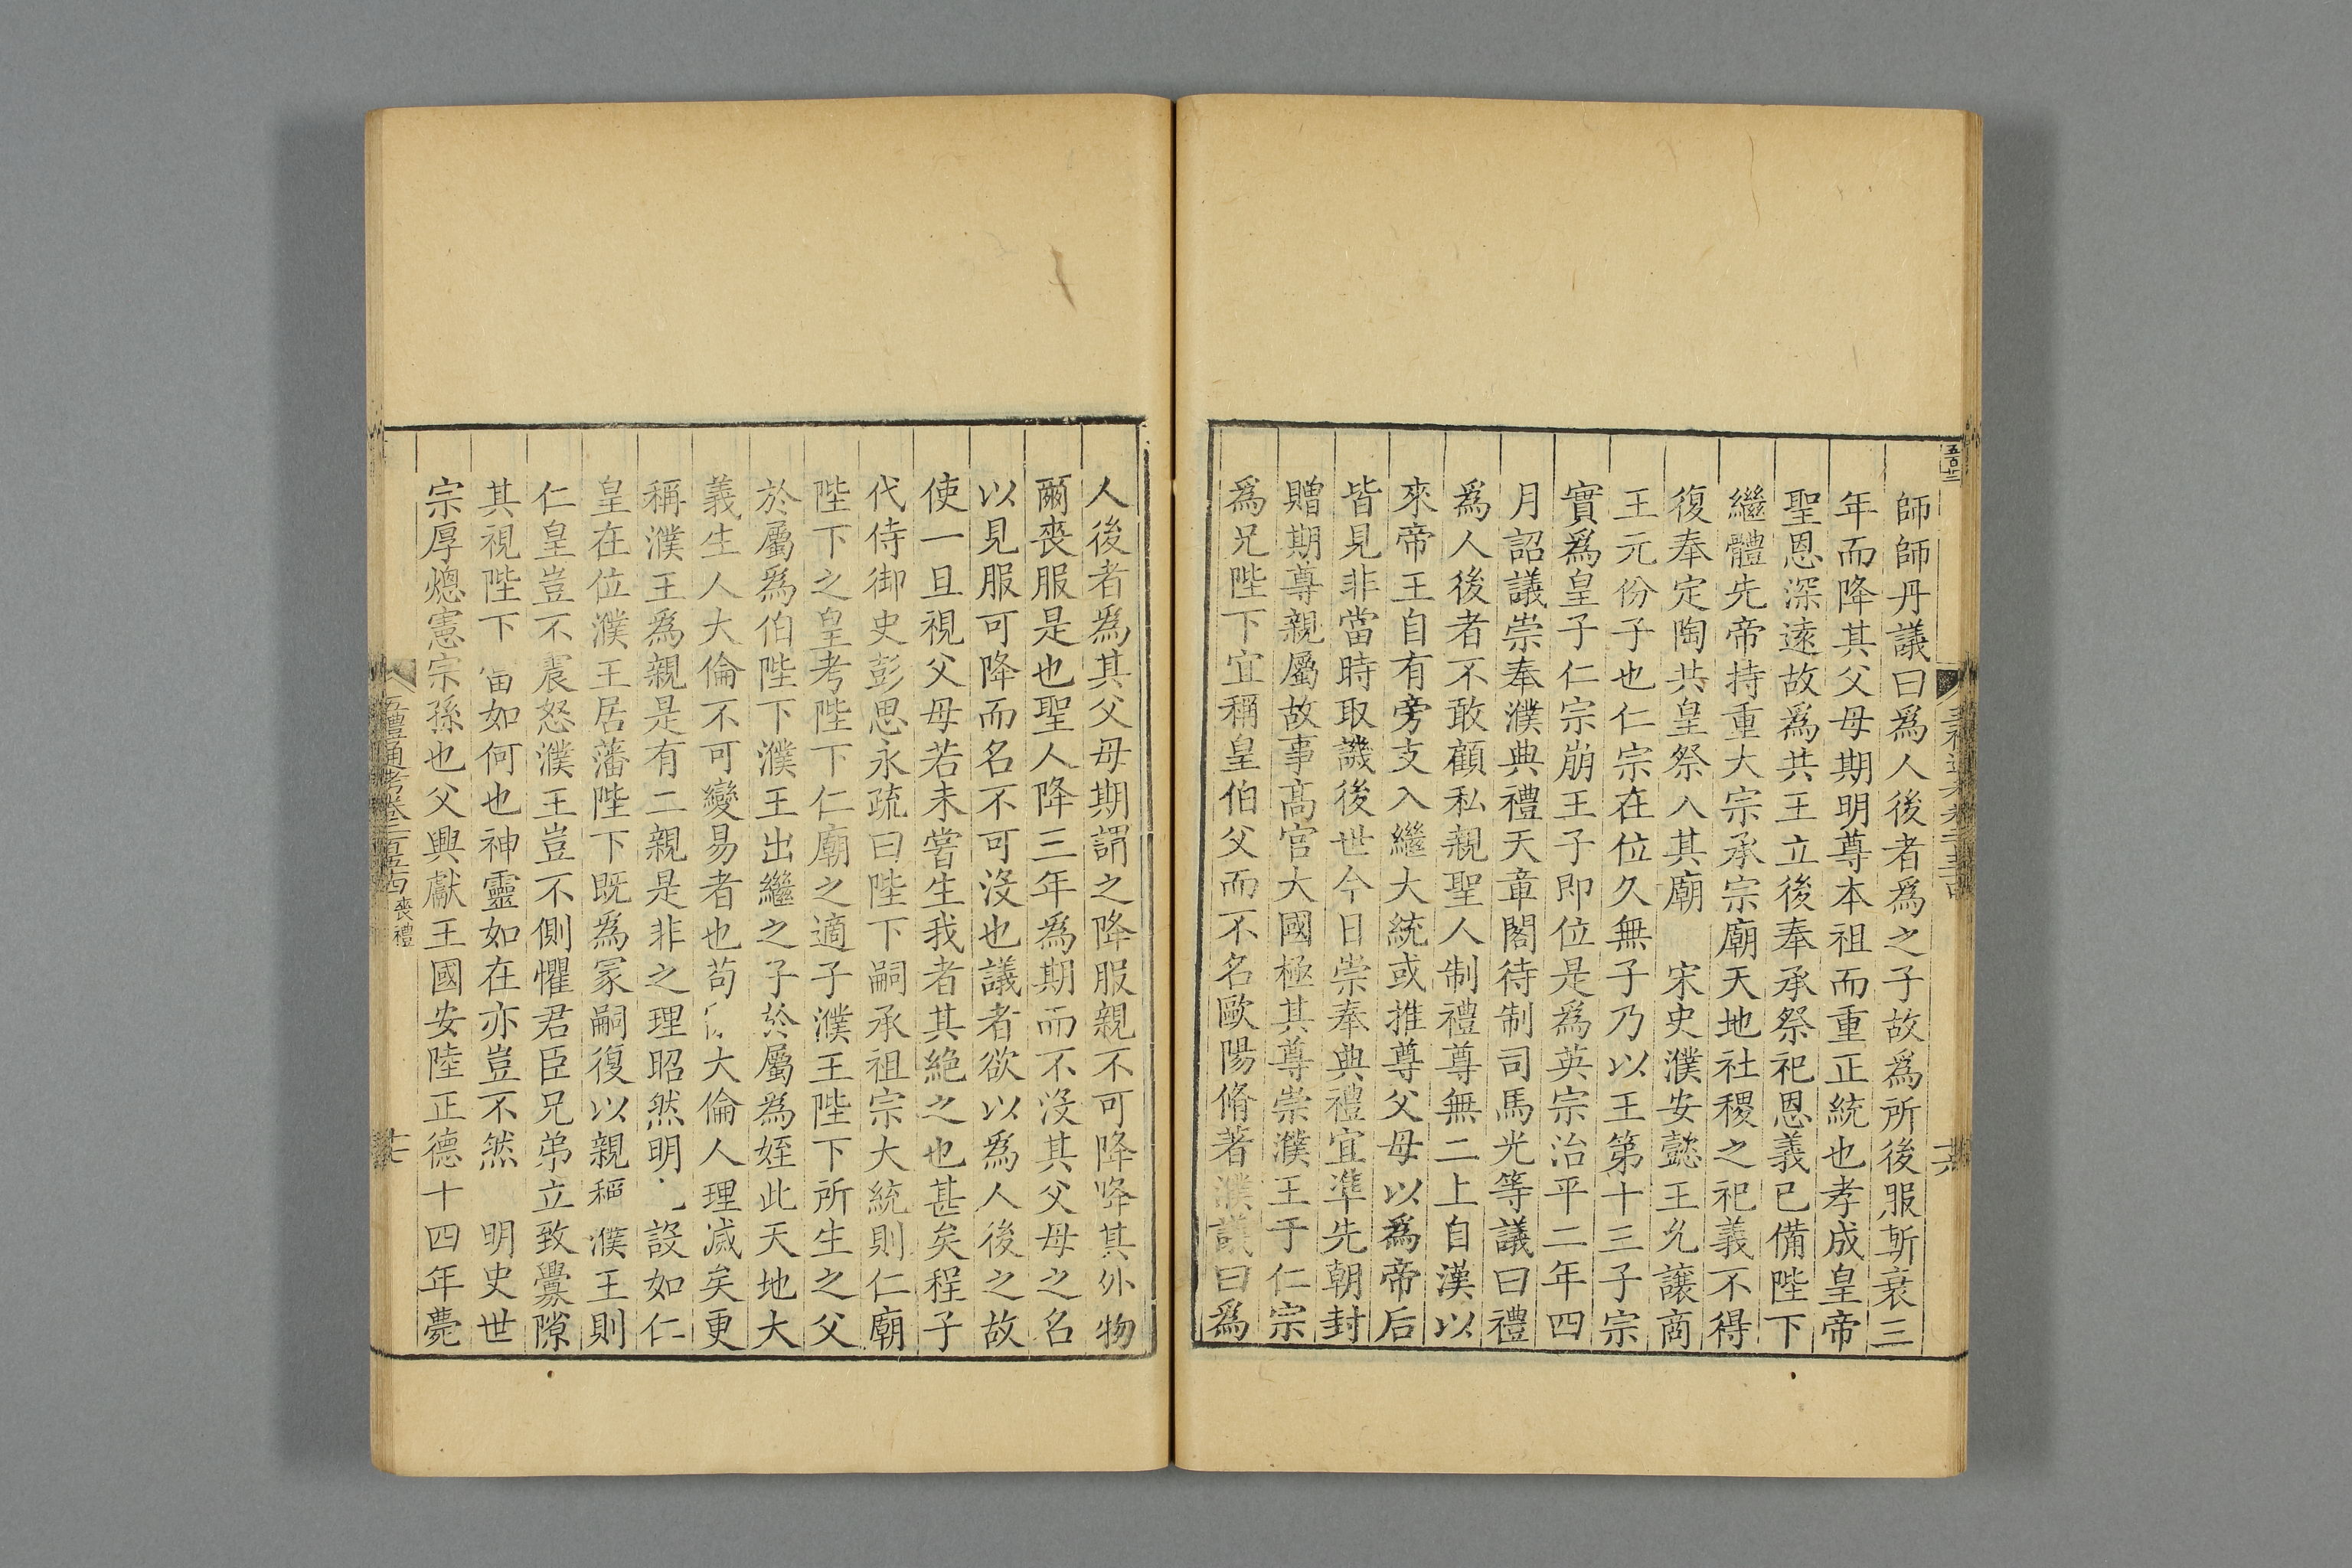 五百廿二
師師丹議曰爲人後者爲之子故爲所後服斬衰三
年而降其父母期明尊本祖而重正統也孝成皇帝
聖恩深遠故爲共王立後奉承祭祀恩義已備陛下
繼體先帝持重大宗承宗廟天地社稷之祀義不得
復奉定陶共皇祭入其廟 宋史濮安懿王允讓商
王元份子也仁宗在位久無子乃以王第十三子宗
實爲皇子仁宗崩王子即位是爲英宗治平二年四
月詔議崇奉濮典禮天章閣待制司馬光等議曰禮
爲人後者不敢顧私親聖人制禮尊無二上自漢以
來帝王自有旁支入繼大統或推尊父母以爲帝后
皆見非當時取譏後世今日崇奉典禮宜準先朝封
贈期尊親屬故事高官大國極其尊崇濮王于仁宗
爲兄陛下宜稱皇伯父而不名歐陽脩著濮議曰爲
人後者爲其父母期謂之降服親不可降降其外物
爾喪服是也聖人降三年爲期而不沒其父母之名
以見服可降而名不可沒也議者欲以爲人後之故
使一旦視父母若未嘗生我者其絶之也甚矣程子
代侍御史彭思永疏曰陛下嗣承祖宗大統則仁廟
陛下之皇考陛下仁廟之適子濮王陛下所生之父
於屬爲伯陛下濮王出繼之子於屬爲姪此天地大
義生人大倫不可變易者也苟大倫人理滅矣更
稱濮王爲親是有二親是非之理昭然明設如仁
皇在位濮王居藩陛下既爲冢嗣復以親稱濮王則
仁皇豈不震怒濮王豈不側懼君臣兄弟立致釁隙
其視陛下當如何也神靈如在亦豈不然 明史世
宗厚熜憲宗孫也父興獻王國安陸正德十四年薨
五禮通考卷二百五十四 喪禮